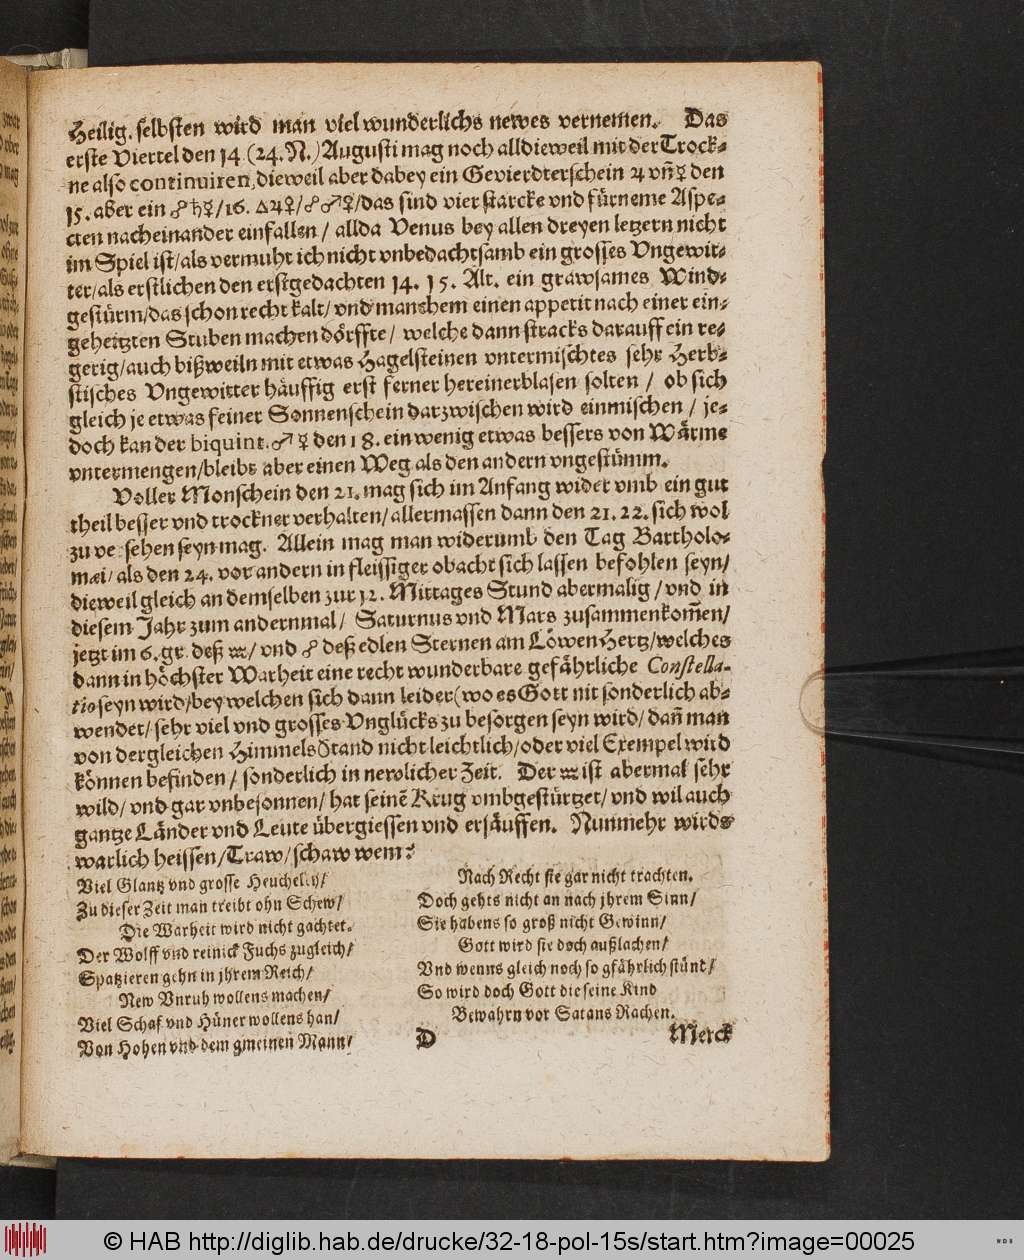 Heilig. selbsten wird man viel wunderlichs newes vernemen. Das
erste Viertel den 14 (24. N.) Augusti mag noch alldieweil mit der Trock⸗
ne also continuiren, dieweil aber dabey ein Gevierdterschein ♃ vñ ☿ den
15. aber ein ☍ ♄ ☿ / 16. △ ♃ ♀ / ☍ ♂ ♀ / das sind vier starcke vnd fürneme Aspe⸗
cten nacheinander einfallen / allda Venus bey allen dreyen letzern nicht
im Spiel ist / als vermuht ich nicht vnbedachtsamb ein grosses Vngewit⸗
ter / als erstlichen den erstgedachten 14. 15. Alt. ein grawsames Wind⸗
gestürm / das schon recht kalt / vnd manchem einen appetit nach einer ein⸗
geheitzten Stuben machen dörffte / welche dann stracks darauff ein re⸗
gerig / auch bißweiln mit etwas Hagelsteinen vntermischtes sehr Herb⸗
stisches Vngewitter häuffig erst ferner hereinerblasen solten / ob sich
gleich je etwas feiner Sonnenschein darzwischen wird einmischen / je⸗
doch kan der biquint. ♂ ☿ den 18. ein wenig etwas bessers von Wärme
vntermengen / bleibt aber einen Weg als den andern vngestümm.
Voller Monschein den 21. mag sich im Anfang wider vmb ein gut
theil besser vnd trockner verhalten / allermassen dann den 21. 22. sich wol
zu ve sehen seyn mag. Allein mag man widerumb den Tag Bartholo⸗
mæi / als den 24. vor andern in fleissiger obacht sich lassen befohlen seyn /
dieweil gleich an demselben zur 12. Mittages Stund abermalig / vnd in
diesem Jahr zum andernmal / Saturnus vnd Mars zusammenkom̃en /
jetzt im 6. gr. deß ♒ / vnd ☍ deß edlen Sternen am Löwen Hertz / welches
dann in höchster Warheit eine recht wunderbare gefährliche Constella⸗
tio seyn wird / bey welchen sich dann leider (wo es Gott nit sonderlich ab⸗
wendet / sehr viel vnd grosses Vnglücks zu besorgen seyn wird / dañ man
von dergleichen Himmels Stand nicht leichtlich / oder viel Exempel wird
können befinden / sonderlich in newlicher Zeit. Der ♒ ist abermal sehr
wild / vnd gar vnbesonnen / hat seinē Krug vmbgestürtzet / vnd wil auch
gantze Länder vnd Leute übergiessen vnd ersäuffen. Nunmehr wirds
warlich heissen / Traw / schaw wem?
Viel Glantz vnd grosse Heucheley /
Zu dieser Zeit man treibt ohn Schew /
Die Warheit wird nicht gachtet.
Der Wolff vnd reinick Fuchs zugleich /
Spatzieren gehn in jhrem Reich /
New Vnruh wollens machen /
Viel Schaf vnd Hüner wollens han /
Von Hohen vnd dem gmeinen Mann /
Nach Recht sie gar nicht trachten.
Doch gehts nicht an nach jhrem Sinn /
Sie habens so groß nicht Gewinn /
Gott wird sie doch außlachen /
Vnd wenns gleich noch so gfährlich stünd /
So wird doch Gott die seine Kind
Bewahrn vor Satans Rachen.
D Merck
© HAB http://diglib.hab.de/drucke/32-18-pol-15s/start.htm?image=00025